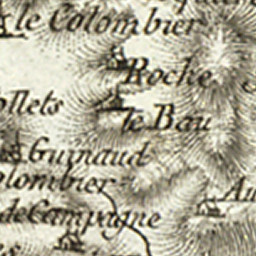 le Colombier
Roche
ollets
le Bau
Guinaud
olombier
Au
de Campagne
es